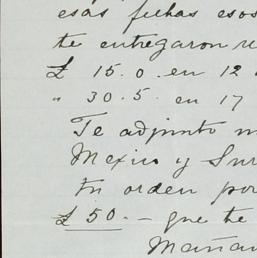 esas fechas esos
te entregaron
£ 15.0. en 12
" 30.5. en 17
Te adjunto
Mexico y Sur
tu orden por
£ 50.— que te
Mañan